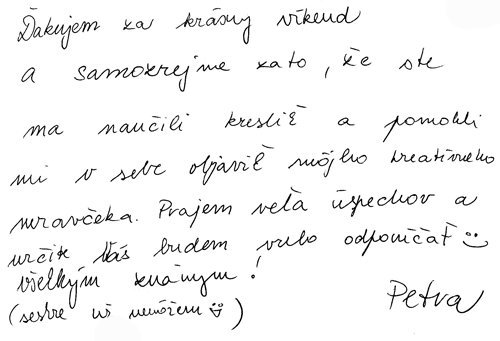 Ďakujem za krásny víkend
a samozrejme zato, že ste
ma naučili kresliť a pomohli
mi v sebe objaviť môjho kreatívneho
mravčeka. Prajem veľa úspechov a
určite Vás budem vrelo odporúčať
všetkým známym!
(sestre už nemôžem)
Petra